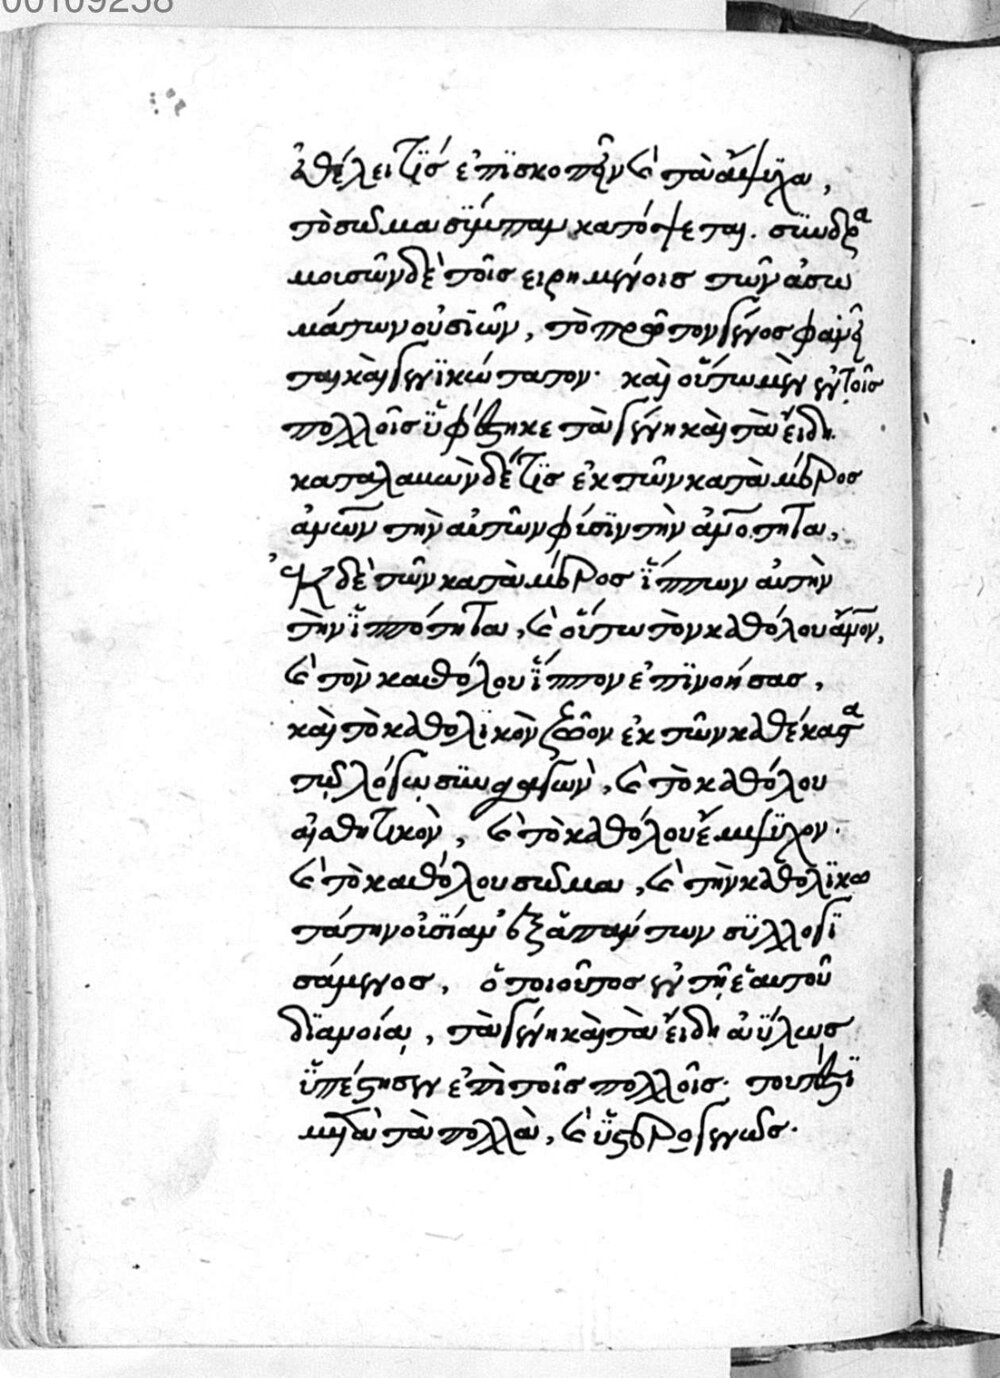 00109258
ἀθέλει τίς ἐπισκοπεῖν καὶ τὰ ἄψυχα,
τὸ σῶμα σύμπαν κατόψεται. συνδρα
μουσῶν δὲ τοῖς εἰρημένοις τῶν ἀσω
μάτων οὐσιῶν, τὸ πρῶτον γένος φανεῖ
ται καὶ γενικώτατον· καὶ οὕτω μὲν ἐν τοῖς
πολλοῖς ὑφέστηκε τὰ γένη καὶ τὰ εἴδη.
καταλαβὼν δέ τις ἐκ τῶν κατὰ μέρος
τὴν αὐτῶν φύσιν τὴν
Ἐκ δὲ τῶν κατὰ μέρος ἵππων αὐτὴν
τὴν ἱππότητα, καὶ οὕτω τὸν καθόλου
καὶ τὸν καθόλου ἵππον ἐπινοήσας,
καὶ τὸ καθολικὸν ζῶον ἐκ τῶν καθέκαστα
τῷ λόγῳ συναγαγὼν, καὶ τὸ καθόλου
αἰσθητικὸν, καὶ τὸ καθόλου ἔμψυχον·
καὶ τὸ καθόλου σῶμα, καὶ τὴν καθολικω
τάτην οὐσίαν ἐξ ἁπάντων συλλογι
σάμενος, ὁ τοιοῦτος ἐν τῇ ἑαυτοῦ
διανοίᾳ, τὰ γένη καὶ τὰ εἴδη ἀΰλως
ὑπέστησεν ἐπὶ τοῖς πολλοῖς· τουτέστι
μετὰ τὰ πολλὰ, καὶ ὑστερογενῶς.